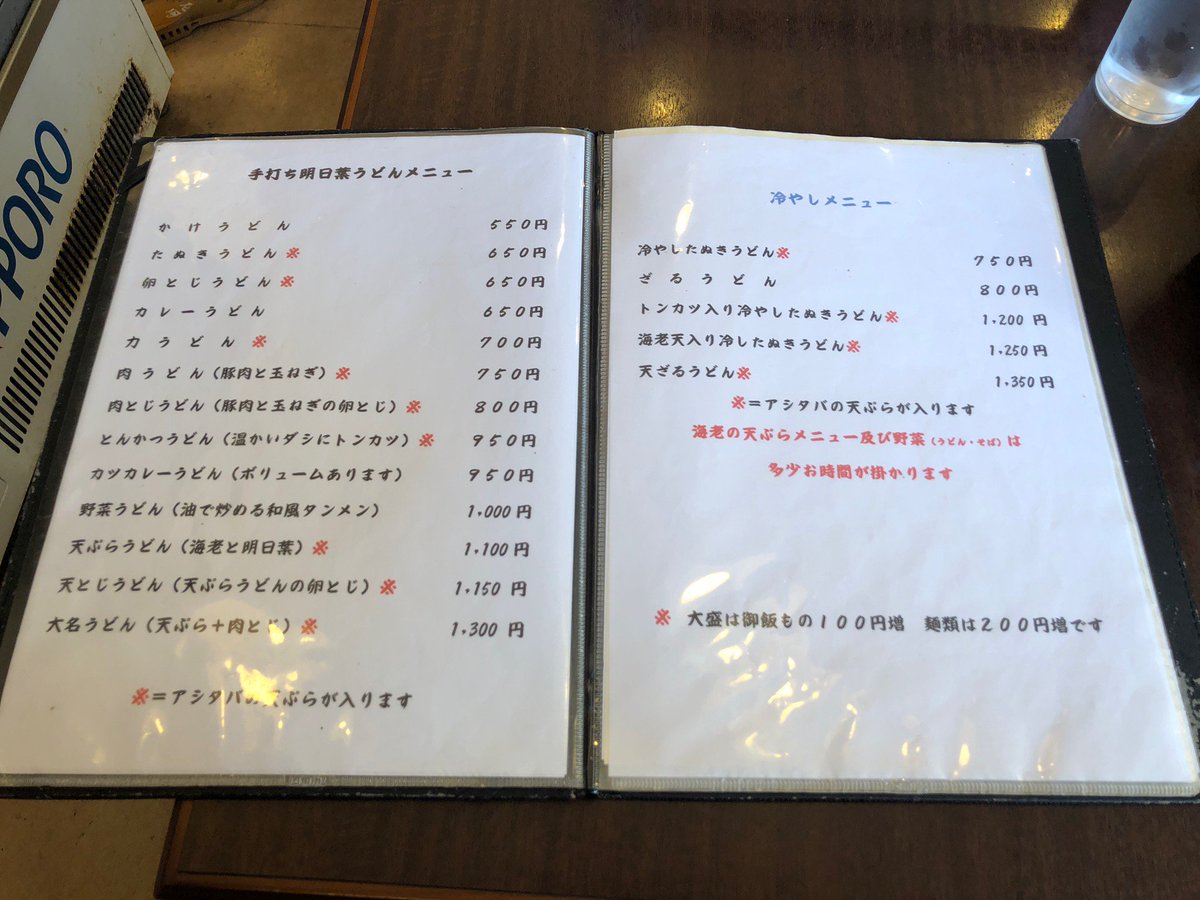 PPORO
手打ち明日葉うどんメニュー
かけうどん 550円
たぬきうどん※ 650円
卵とじうどん※ 650円
カレーうどん 650円
力うどん※ 700円
肉うどん（豚肉と玉ねぎ）※ 750円
肉とじうどん（豚肉と玉ねぎの卵とじ）※ 800円
とんかつうどん（温かいダシにトンカツ）※ 950円
カツカレーうどん（ボリュームあります） 950円
野菜うどん（油で炒める和風タンメン） 1,000円
天ぷらうどん（海老と明日葉）※ 1,100円
天とじうどん（天ぷらうどんの卵とじ）※ 1,150円
大名うどん（天ぷら＋肉とじ）※ 1,300円
※＝アシタバの天ぷらが入ります
冷やしメニュー
冷やしたぬきうどん※ 750円
ざるうどん 800円
トンカツ入り冷やしたぬきうどん※ 1,200円
海老天入り冷したぬきうどん※ 1,250円
天ざるうどん※ 1,350円
※＝アシタバの天ぷらが入ります
海老の天ぷらメニュー及び野菜（うどん・そば）は
多少お時間が掛かります
※ 大盛は御飯もの１００円増 麺類は２００円増です